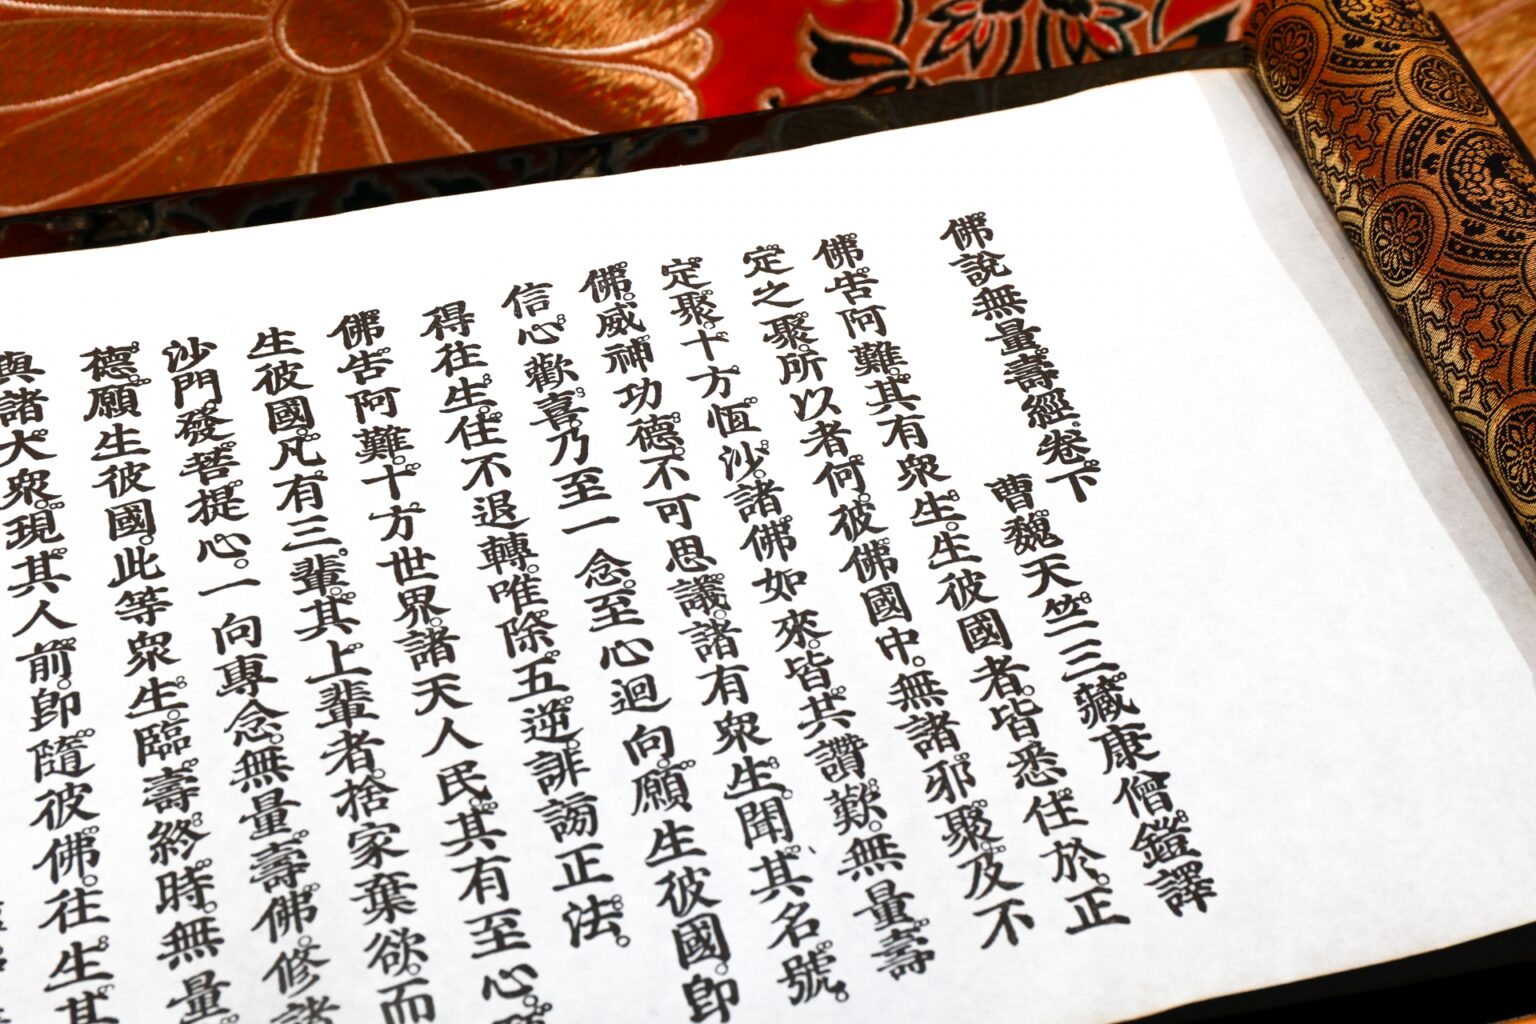 佛說無量壽經卷下
曹魏天竺三藏康僧鎧譯
佛告阿難其有衆生生彼國者皆悉住於正
定之聚所以者何彼佛國中無諸邪聚及不
定聚十方恆沙諸佛如來皆共讚歎無量壽
佛威神功德不可思議諸有衆生聞其名號
信心歡喜乃至一念至心迴向願生彼國卽
得往生住不退轉唯除五逆誹謗正法
佛告阿難十方世界諸天人民其有至心願
生彼國凡有三輩其上輩者捨家棄欲而
沙門發菩提心一向專念無量壽佛修諸
德願生彼國此等衆生臨壽終時無量
與諸大衆現其人前卽隨彼佛往生其